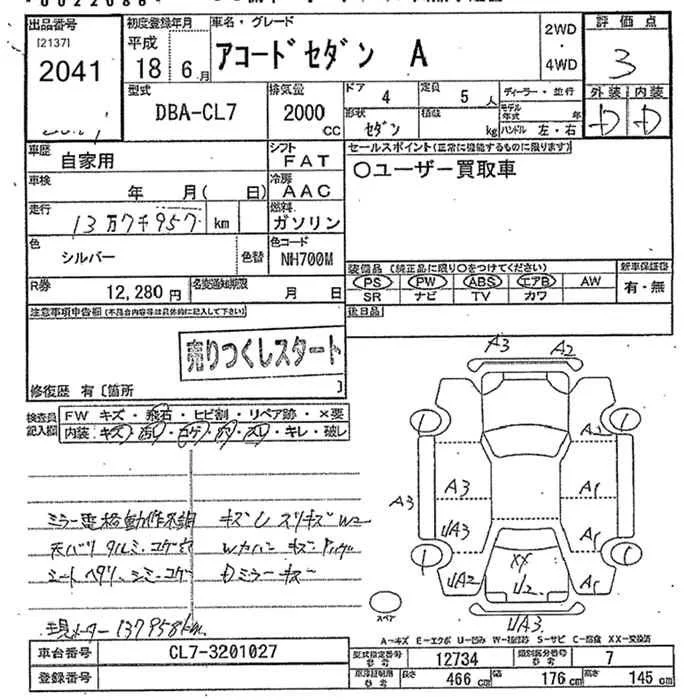 出品番号
[2137]
2041
初度登録年月
平成
18 6月
車名・グレード
アコードセダン A
2WD
・
4WD
評価点
3
外装 内装
D D
型式
DBA-CL7
排気量
2000
CC
ドア 4
定員 5 人
形状
セダン
積載
kg
ディーラー・並行
モデル年式 年
ハンドル 左・右
車歴
自家用
シフト
FAT
セールスポイント(正常に機能するものに限ります)
〇ユーザー買取車
車検
年 月( 日)
冷房
AAC
走行
13万7千957 km
燃料
ガソリン
色
シルバー
色替
色コード
NH700M
R券
12,280円
名変通知期限
月 日
装備品(純正品に限り〇をつけてください)
PS PW ABS エアB AW
SR ナビ TV カワ
新車保証書
有・無
後日品
注意事項申告欄(不具合内容等は具体的に記入して下さい)
売りつくしスタート
修復歴 有〔箇所 〕
検査員
記入欄
FW キズ・飛石・ヒビ割・リペア跡・×要
内装:キズ・汚レ・コゲ・穴・スレ・キレ・破レ
ミラー電格動作不調
天バリ タルミ、コゲ穴
シートヘタリ、シミ、コゲ
現メーター 137958km
キズ U スリキズ W2
Wカバー キズ
Dミラーキズ
A3 A2
A2
A3 A3 A1
UA3 A1
UA2 XX U2 A1
UA3
スペア
A-キズ E-エクボ U-凹み W-補修跡 S-サビ C-腐食 XX-交換済
車台番号
CL7-3201027
登録番号
型式指定番号
参考
12734
類別区分番号
参考
7
車庫証明用
参考
長さ 466 cm
幅 176 cm
高さ 145 cm